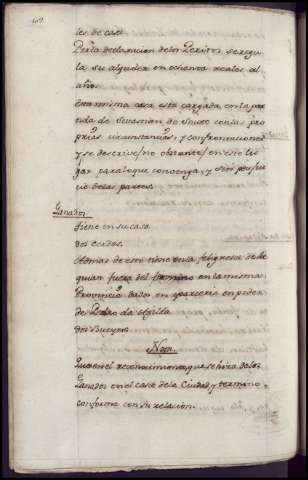 tes de casa
Por la declaracion de los Peritos se regu
la su alquiler en ochenta reales al
año.
Esta misma casa está cargada en la par
tida de con las pro
prias circunstancias, y confrontaciones
y se describe/no obstante/en este lu
gar para lo que convenga, y sin perjui
cio de las partes.
Ganados
tiene en su casa
dos cerdos.
Ademas de esto tiene en la feligresia de
quian fuera del termino en la misma
Provincia dados en aparceria en poder
de Pedro de
dos Bueyes.
Nota.
Que en el reconocimiento que se hizo de los
Ganados en el casco de la Ciudad y termino,
conforme con su relacion.